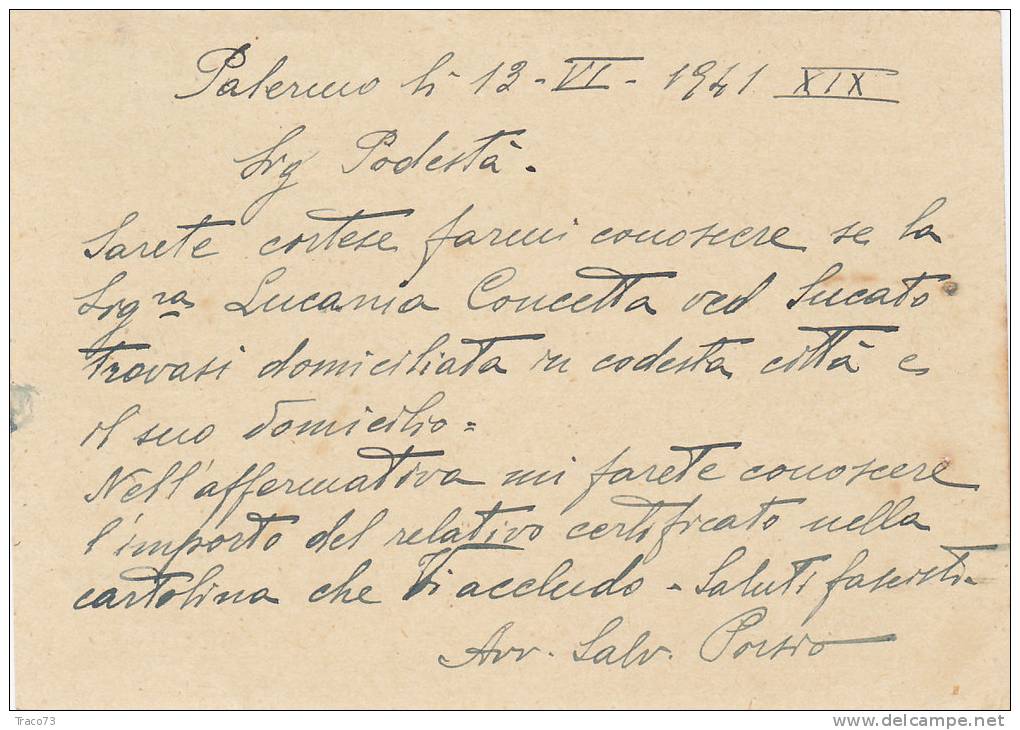 Palermo li 13-VI-1941 XIX
Sig Podestà.
Sarete cortese farmi conoscere se la
Sig.ra Lucania Concetta ved Sucato
trovasi domiciliata in codesta città e
il suo domicilio=
Nell'affermativa mi farete conoscere
l'importo del relativo certificato nella
cartolina che Vi accludo - Saluti fascisti-
Avv. Salv.
Traco73
www.delcampe.net